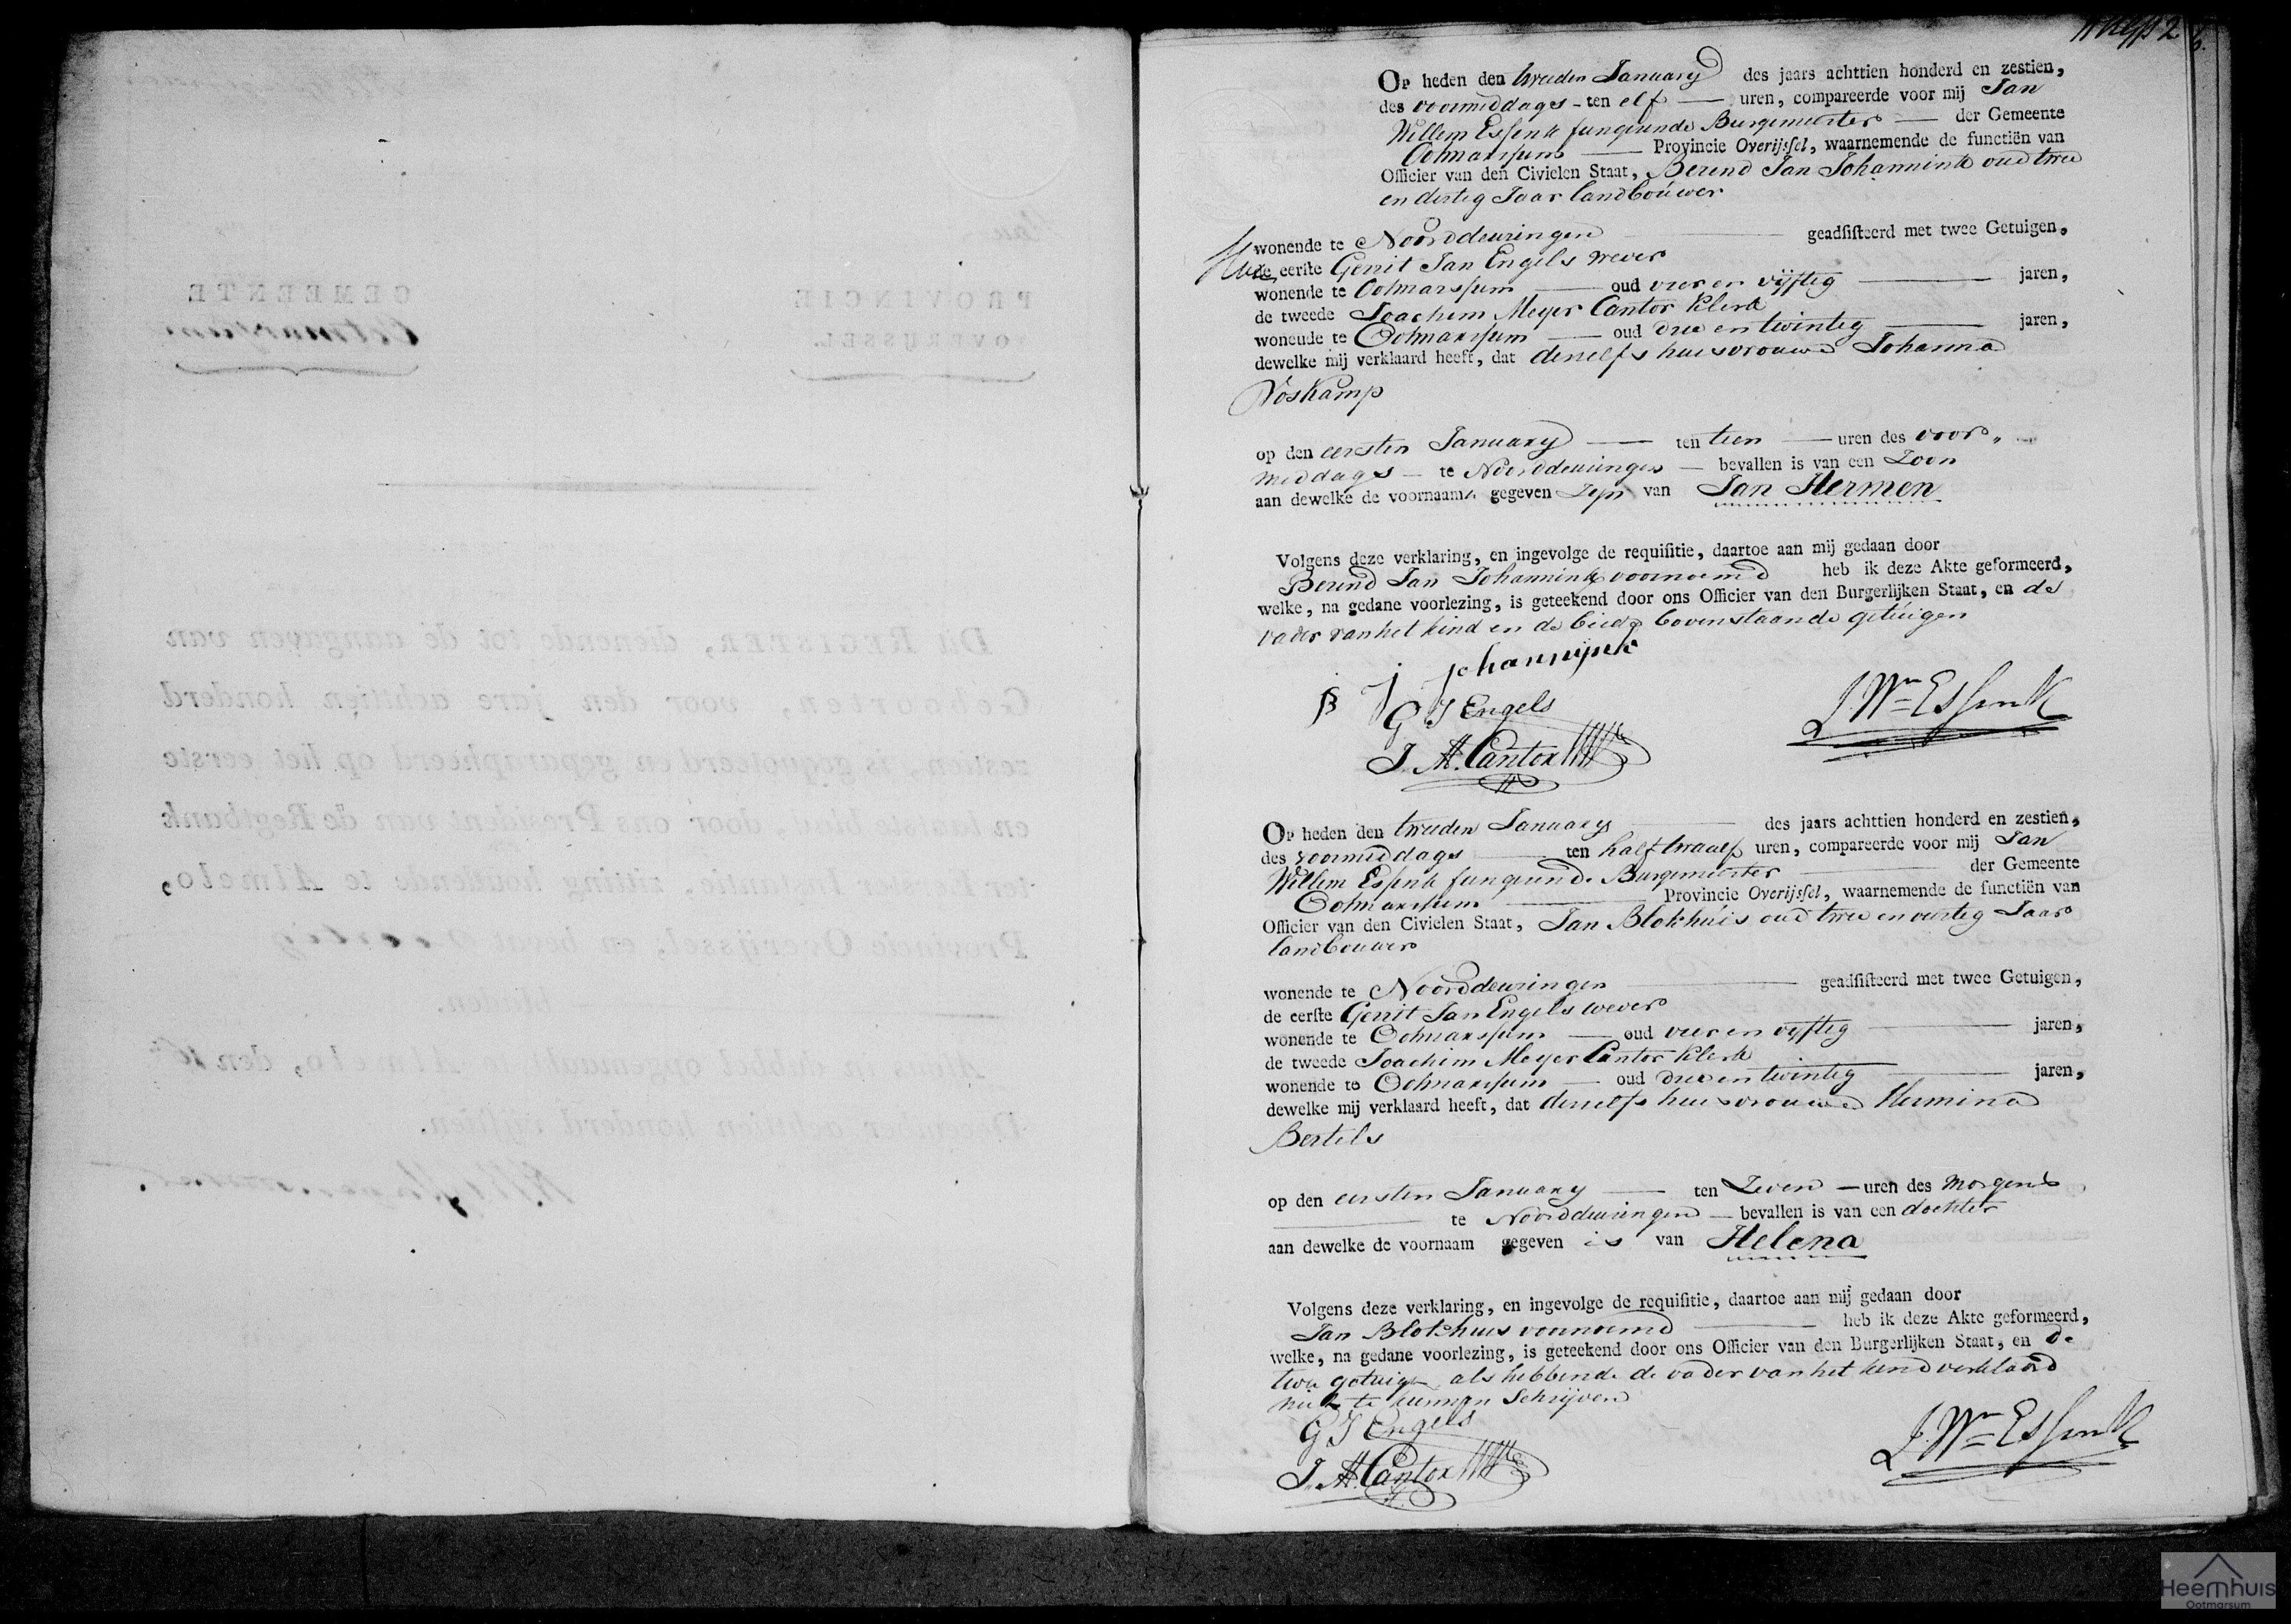 Op heden den tweeden January des jaars achttien honderd en zestien,
des voormiddags - ten elf — uren, compareerde voor mij Jan
Willem Essink fungeerende Burgemeester — der Gemeente
Ootmarssum — Provincie Overijssel, waarnemende de functiën van
Officier van den Civielen Staat, Berend Jan Johannink oud twee
en dertig Jaar landbouwer
wonende te Noorddeuringen geadsisteerd met twee Getuigen,
de eerste Gerrit Jan Engels wever
wonende te Ootmarssum — oud vier en vijftig — jaren,
de tweede Joachim Meyer Cantor Klerk
wonende te Ootmarssum — oud drie en twintig — jaren,
dewelke mij verklaard heeft, dat deszelfs huisvrouwe Johanna
Voskamp
op den eersten January — ten tien — uren des voor„
middags — te Noorddeuringen — bevallen is van een Zoon
aan dewelke de voornaam gegeven zijn van Jan Hermen
Volgens deze verklaring, en ingevolge de requisitie, daartoe aan mij gedaan door
Berend Jan Johannink voornoemd heb ik deze Akte geformeerd,
welke, na gedane voorlezing, is geteekend door ons Officier van den Burgerlijken Staat, en de
vader van het kind en de beide bovenstaande getuigen
B J Johannijnk
G J Engels
J. M. Cantor
J. Wm Essink
Op heden den tweeden January — des jaars achttien honderd en zestien,
des voormiddags — ten half twaalf uren, compareerde voor mij Jan
Willem Essink fungeerende Burgemeester — der Gemeente
Ootmarssum — Provincie Overijssel, waarnemende de functiën van
Officier van den Civielen Staat, Jan Blokhuis oud twee en veertig Jaar
landbouwer
wonende te Noorddeuringen — geadsisteerd met twee Getuigen,
de eerste Gerrit Jan Engels wever
wonende te Ootmarssum — oud vier en vijftig — jaren,
de tweede Joachim Meyer Cantor Klerk
wonende te Ootmarssum — oud drie en twintig — jaren,
dewelke mij verklaard heeft, dat deszelfs huisvrouwe Hermina
Bertels
op den eersten January — ten Zeven — uren des morgens
— te Noorddeuringen — bevallen is van een dochter
aan dewelke de voornaam gegeven is van Helena
Volgens deze verklaring, en ingevolge de requisitie, daartoe aan mij gedaan door
Jan Blokhuis voornoemd — heb ik deze Akte geformeerd,
welke, na gedane voorlezing, is geteekend door ons Officier van den Burgerlijken Staat, en de
twee getuigen als hebbende de vader van het kind verklaard
niet te kunnen Schrijven
G J Engels
J. M. Cantor
J. Wm Essink
Heemhuis
Ootmarsum